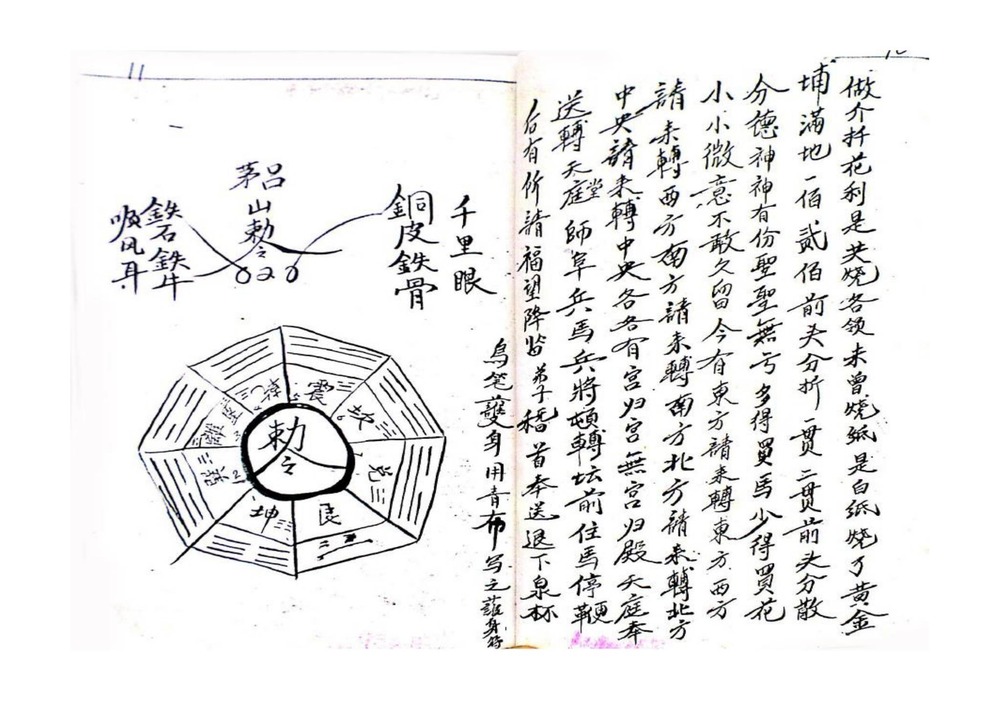 做介扦花利是共燒各领未曾燒紙是白紙燒了黄金
埔满地一佰貳佰前头分折一貫二貫前头分散
分德神神有份聖聖無亏多得買馬少得買花
小小微意不敢久留今有東方請来轉東方西方
請来轉西方南方請来轉南方北方請来轉北方
中央請来轉中央各各有宫归宫無宫归殿天庭奉
送轉天庭堂師阜兵馬兵將頓轉坛前住馬停鞭
后有所請福望降监弟子稽首奉送退下泉杯
烏笔護身用青布写之護身符
11
千里眼
銅皮鉄骨
茅吕
山
勅令
鉄石鉄牛
順风耳
勅令
震
坎
兑
艮
坤
巽
離
乾